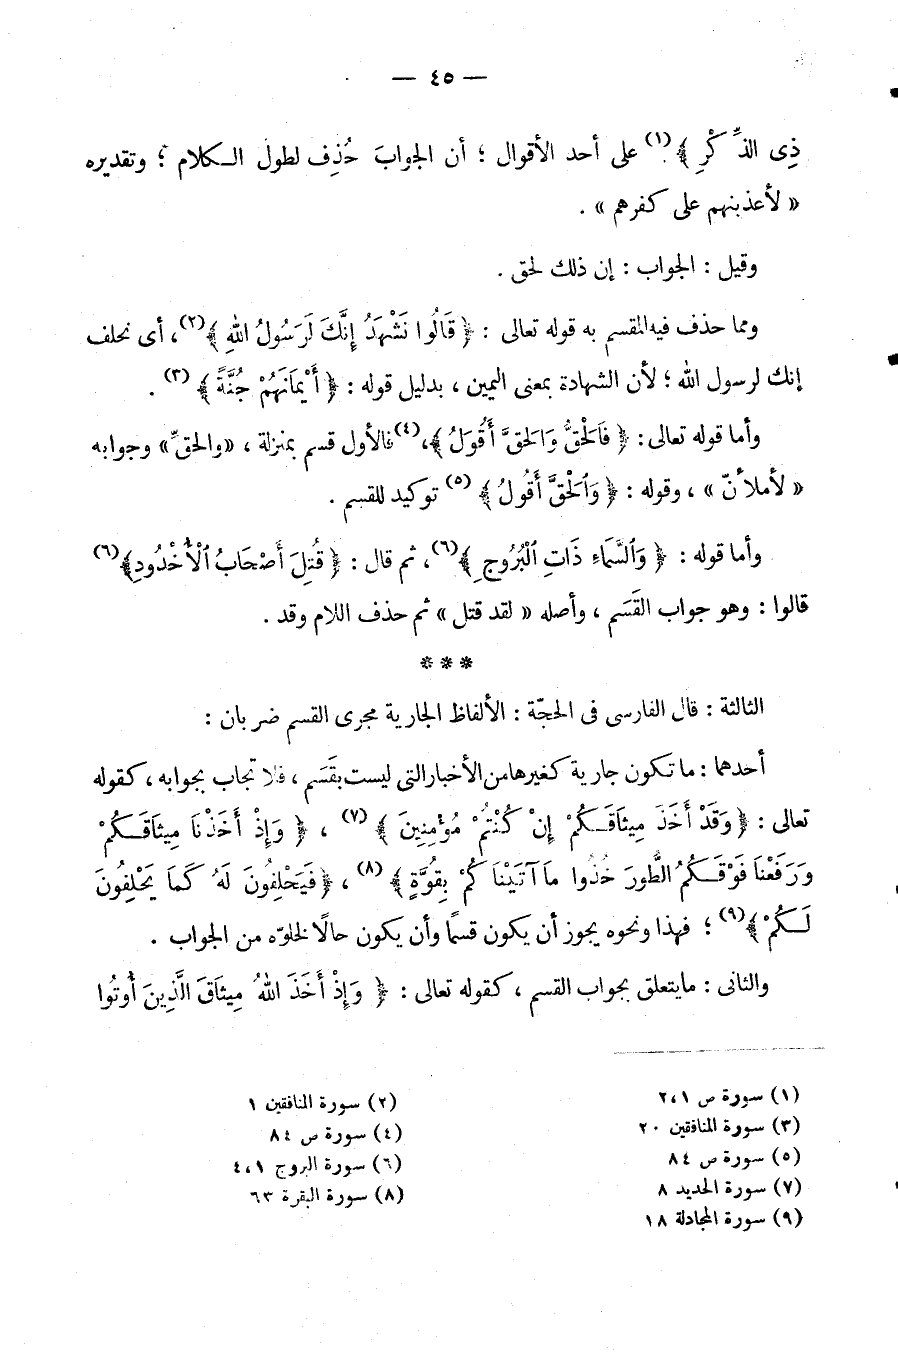 — ٤٥ —
ذِى الذِّكْرِ ﴾(١) على أحد الأقوال ؛ أن الجوابَ حُذِف لطول الكلام ؛ وتقديره
« لأعذبنهم على كفرهم » .
وقيل : الجواب : إن ذلك لحق .
ومما حذف فيه المقسم به قوله تعالى : ﴿ قَالُوا نَشْهَدُ إِنَّكَ لَرَسُولُ اللهِ ﴾(٢)، أى نحلف
إنك لرسول الله ؛ لأن الشهادة بمعنى اليمين ، بدليل قوله : ﴿ أَيْمَانَهُمْ جُنَّةً ﴾ (٣) .
وأما قوله تعالى : ﴿ فَٱلْحَقُّ وَٱلحَقَّ أَقُولُ ﴾،(٤)فالأول قسم بمنزلة ، «والحقِّ» وجوابه
« لأملأنّ » ، وقوله : ﴿ وَٱلْحَقَّ أَقُولُ ﴾ (٥) توكيد للقسم .
وأما قوله : ﴿ وَٱلسَّمَاءِ ذَاتِ ٱلْبُرُوجِ ﴾(٦)، ثم قال : ﴿ قُتِلَ أَصْحَابُ ٱلْأُخْدُودِ﴾(٦)
قالوا : وهو جواب القَسَم ، وأصله « لقد قتل » ثم حذف اللام وقد .
***
الثالثة : قال الفارسى فى الحجّة : الألفاظ الجارية مجرى القسم ضربان :
أحدهما : ما تكون جارية كغيرها من الأخبار التى ليست بقَسَم ، فلا تجاب بجوابه ، كقوله
تعالى : ﴿ وَقَدْ أَخَذَ مِيثَاقَكُمْ إِنْ كُنْتُمْ مُؤْمِنِينَ ﴾ (٧) ، ﴿ وَإِذْ أَخَذْنَا مِيثَاقَكُمْ
وَرَفَعْنَا فَوْقَكُمُ الطُّورَ خُذُوا مَا آتَيْنَاكُمْ بِقُوَّةٍ ﴾(٨) ، ﴿ فَيَحْلِفُونَ لَهُ كَمَا يَحْلِفُونَ
لَكُمْ ﴾(٩) ؛ فهذا ونحوه يجوز أن يكون قسمًا وأن يكون حالًا لخلوّه من الجواب .
والثانى : ما يتعلق بجواب القسم ، كقوله تعالى : ﴿ وَإِذْ أَخَذَ اللهُ مِيثَاقَ الَّذِينَ أُوتُوا
(١) سورة ص ٢،١
(٢) سورة المنافقين ١
(٣) سورة المنافقين ٢٠
(٤) سورة ص ٨٤
(٥) سورة ص ٨٤
(٦) سورة البروج ٤،١
(٧) سورة الحديد ٨
(٨) سورة البقرة ٦٣
(٩) سورة المجادلة ١٨